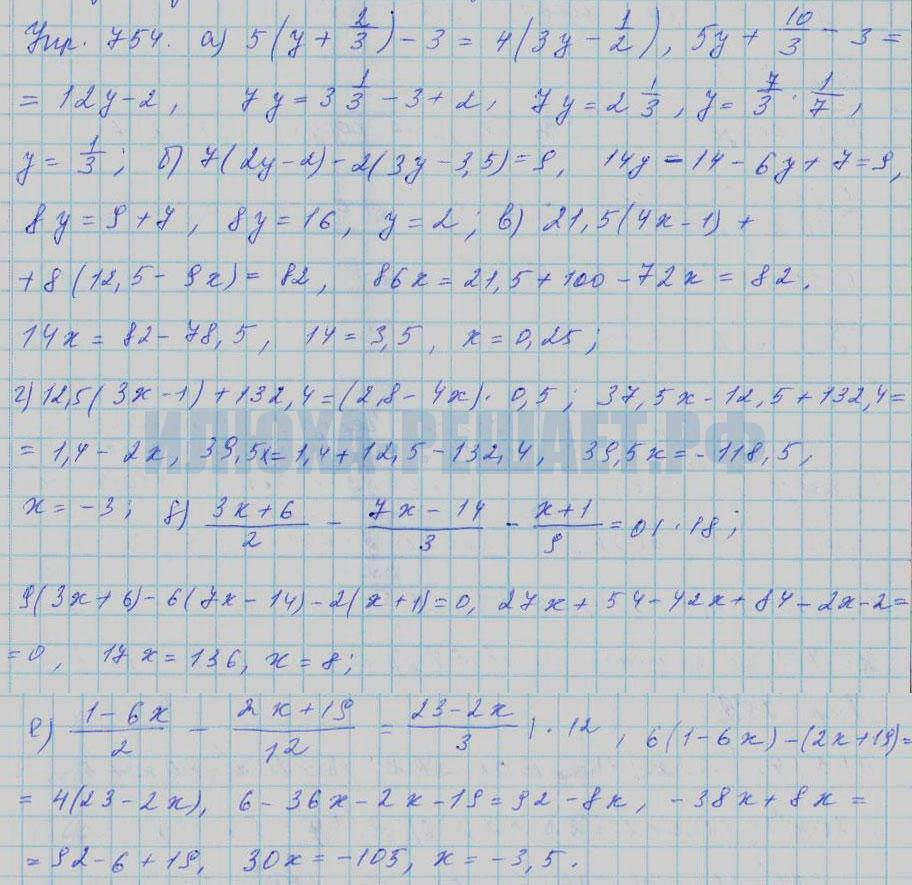 Упр. 754. а) 5(y + 2/3) - 3 = 4(3y - 1/2), 5y + 10/3 - 3 =
= 12y - 2, 7y = 3 1/3 - 3 + 2, 7y = 2 1/3, y = 7/3 · 1/7,
y = 1/3; б) 7(2y - 2) - 2(3y - 3,5) = 9, 14y - 14 - 6y + 7 = 9,
8y = 9 + 7, 8y = 16, y = 2; в) 21,5(4x - 1) +
+ 8(12,5 - 9x) = 82, 86x = 21,5 + 100 - 72x = 82.
14x = 82 - 78,5, 14 = 3,5, x = 0,25;
г) 12,5(3x - 1) + 132,4 = (2,8 - 4x) · 0,5; 37,5x - 12,5 + 132,4 =
ИЛЮХА-РЕШАЕТ.РФ
= 1,4 - 2x, 39,5x = 1,4 + 12,5 - 132,4, 39,5x = -118,5,
x = -3; д) (3x + 6)/2 - (7x - 14)/3 - (x + 1)/9 = 0 | · 18;
9(3x + 6) - 6(7x - 14) - 2(x + 1) = 0, 27x + 54 - 42x + 84 - 2x - 2 =
= 0, 17x = 136, x = 8;
е) (1 - 6x)/2 - (2x + 19)/12 = (23 - 2x)/3 | · 12, 6(1 - 6x) - (2x + 19) =
= 4(23 - 2x), 6 - 36x - 2x - 19 = 92 - 8x, -38x + 8x =
= 92 - 6 + 19, 30x = -105, x = -3,5.